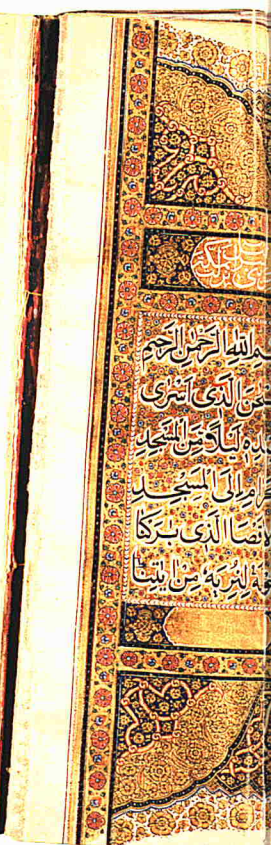 ـم الله الرَّحْمٰنِ الرَّحِيمِ
ـحٰنَ الَّذِى اَسْرٰى
ـبْدِهِ لَيْلًا مِنَ الْمَسْجِدِ
ـرَامِ اِلَى الْمَسْجِدِ
ـقْصَا الَّذِى بٰرَكْنَا
ـهُ لِنُرِيَهُ مِنْ اٰيٰتِنَا